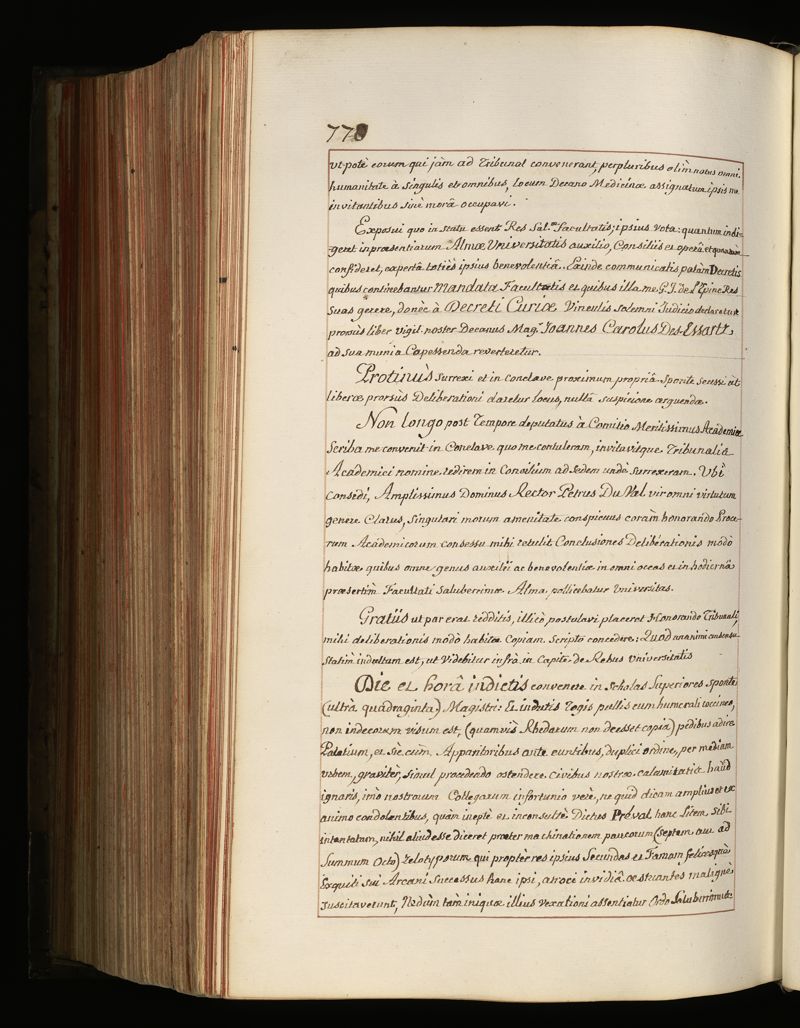 778
ut potè eorum qui jàm ad Tribunal convenerant, perpluribus olim notus omni.
humanitate à singulis et omnibus, locum Decano Medicinæ assignatum ipsis me
invitantibus sinè morâ occupavi.
Exposui quo in statu essent Res Sal.æ Facultatis; ipsius vota: quantum indi-
geret in præsentiarum Almæ Universitatis auxilio, Consiliis et operâ, et quantùm
confideret, expertâ totiès ipsius benevolentiâ. Exinde communicatis palàm Decretis
quibus continebantur Mandata Facultatis et quibus illa me G. J. de L'Epine Res
suas gerere, donèc à Decreti Curiæ Vinculis solemni Judicio declaretur
prorsùs liber vigil noster Decanus Mag.r Joannes Carolus Des-Essartz,
ad sua munia Capessenda reverteretur.
Protinùs surrexi et in Conclave proximum propriâ sponte secessi ut
liberæ prorsùs Deliberationi daretur locus, nullâ suspicione arguendæ.
Non longo post Tempore deputatus à Comitio Meritissimus Academiæ
Scriba me convenit in Conclave quo me contuleram, invitavitque Tribunalis
Academici nomine redirem in Consilium ad sedem undè surrexeram. Ubi
Consedi, Amplissimus Dominus Rector Petrus Du Val vir omni virtutum
genere Clarus, Singulari morum amenitate conspicuus coràm honorando Proce-
rum Academicorum consessu mihi retulit Conclusiones Deliberationis modò
habitæ quibus omne genus auxilii ac benevolentiæ in omni occas et in hodiernâ
præsertìm Facultati saluberrimæ Alma pollicebatur Universitas.
Gratiis ut par erat redditis, illicò postulavi placeret Honorando Tribunali,
mihi deliberationis modò habitæ Copiam Scripto concedere: Quod unanimi consensu
statim indultum est; ut Videbitur infrà in Capite de Rebus Universitatis
Die et horâ indictis convenere in Scholas Superiores sponte
(ultrà quadraginta) Magistri: Et indutis Togis pullis cum humerali coccineo,
non indecorum visum est, (quamvis Rhedarum non deesset copia) pedibus adire
Palatium, et sic cùm Apparitoribus ante euntibus, duplici ordine, per mediam
urbem, graviter, simul procedendo ostendere Civibus nostræ calamitatis haud
ignaris, imò nostrorum Collegarum infortunio vere, ne quid dicam ampliùs et ex
animo condolentibus, quàm ineptè et inconsultè Dictus Préval hanc Litem, sibi
intentatam, nihil aliud esse diceret præter machinationem paucorum (septem aut ad
summum Octo) zelotyporum qui proptèr res ipsius Secundas et Famam felicesquè
Exquisiti sui Arcani Successus hanc ipsi, atroce invidiâ æstuantes malignè
suscitaverunt, Nedùm tàm iniquæ illius vexationi assentiatur Ordo Saluberrimus: